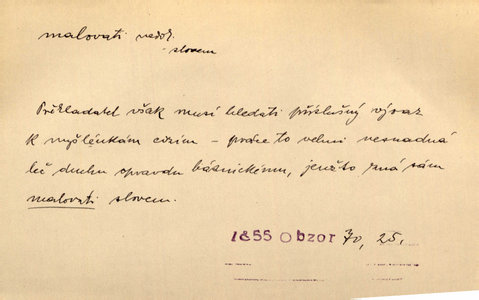 malovati nedok.
slovem
Překladatel však musí hledati příslušný výraz
k myšlénkám cizím – práce to velmi nesnadná
leč duchu opravdu básnickému, jenžto zná sám
malovati slovem.
1855 Obzor 70, 25.